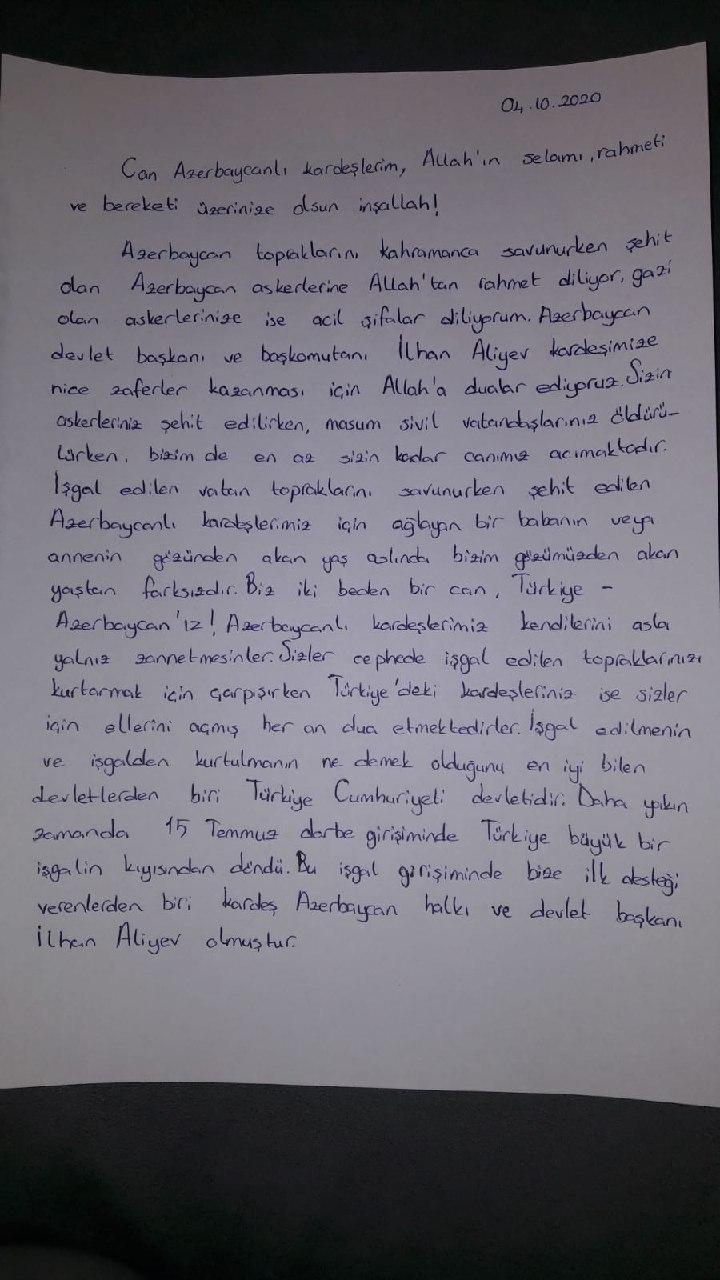 04.10.2020
Can Azerbaycanlı kardeşlerim, Allah'ın selamı, rahmeti
ve bereketi üzerinize olsun inşallah!
Azerbaycan topraklarını kahramanca savunurken şehit
olan Azerbaycan askerlerine Allah'tan rahmet diliyor, gazi
olan askerlerinize ise acil şifalar diliyorum. Azerbaycan
devlet başkanı ve başkomutanı İlhan Aliyev kardeşimize
nice zaferler kazanması için Allah'a dualar ediyoruz. Sizin
askerleriniz şehit edilirken, masum sivil vatandaşlarınız öldürü-
lürken, bizim de en az sizin kadar canımız acımaktadır.
İşgal edilen vatan topraklarını savunurken şehit edilen
Azerbaycanlı kardeşlerimiz için ağlayan bir babanın veya
annenin gözünden akan yaş aslında bizim gözümüzden akan
yaştan farksızdır. Biz iki beden bir can, Türkiye -
Azerbaycan'ız! Azerbaycanlı kardeşlerimiz kendilerini asla
yalnız zannetmesinler. Sizler cephede işgal edilen topraklarınızı
kurtarmak için çarpışırken Türkiye'deki kardeşleriniz ise sizler
için ellerini açmış her an dua etmektedirler. İşgal edilmenin
ve işgalden kurtulmanın ne demek olduğunu en iyi bilen
devletlerden biri Türkiye Cumhuriyeti devletidir. Daha yakın
zamanda 15 Temmuz darbe girişiminde Türkiye büyük bir
işgalin kıyısından döndü. Bu işgal girişiminde bize ilk desteği
verenlerden biri kardeş Azerbaycan halkı ve devlet başkanı
İlhan Aliyev olmuştur.